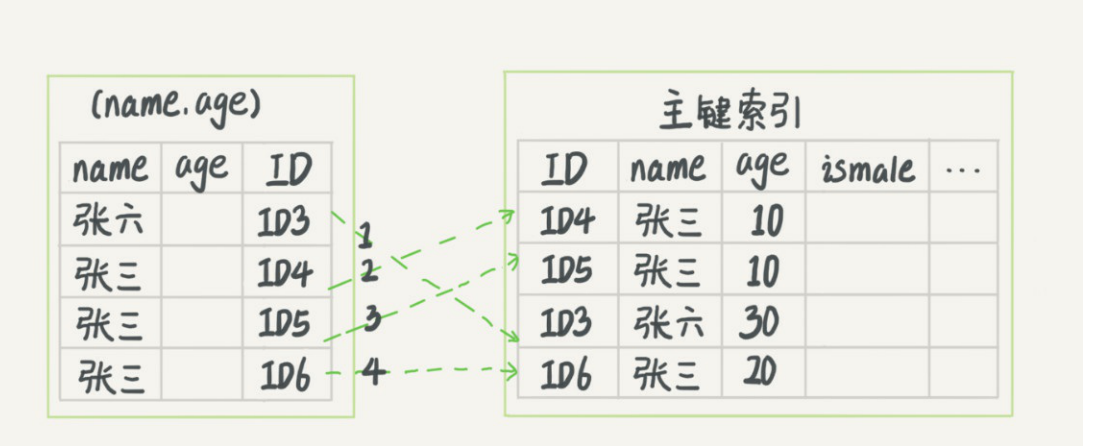 (name.age)
name age ID
张六 ID3
张三 ID4
张三 ID5
张三 ID6
1
2
3
4
主键索引
ID name age ismale ...
ID4 张三 10
ID5 张三 10
ID3 张六 30
ID6 张三 20